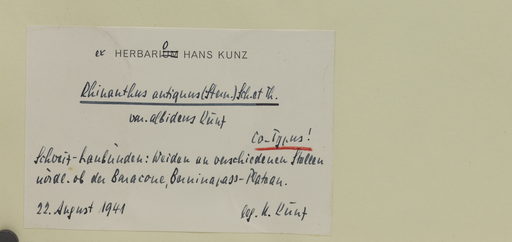 ex HERBARIO HANS KUNZ
Rhinanthus antiquus (Stern.) Sch. et Th.
var. albidens Kunz
Co-Typus!
Schweiz-Graubünden: Weiden an verschiedenen Stellen
nördl. ob der Baracone, Berninapass-Plateau.
22. August 1941 leg. H. Kunz